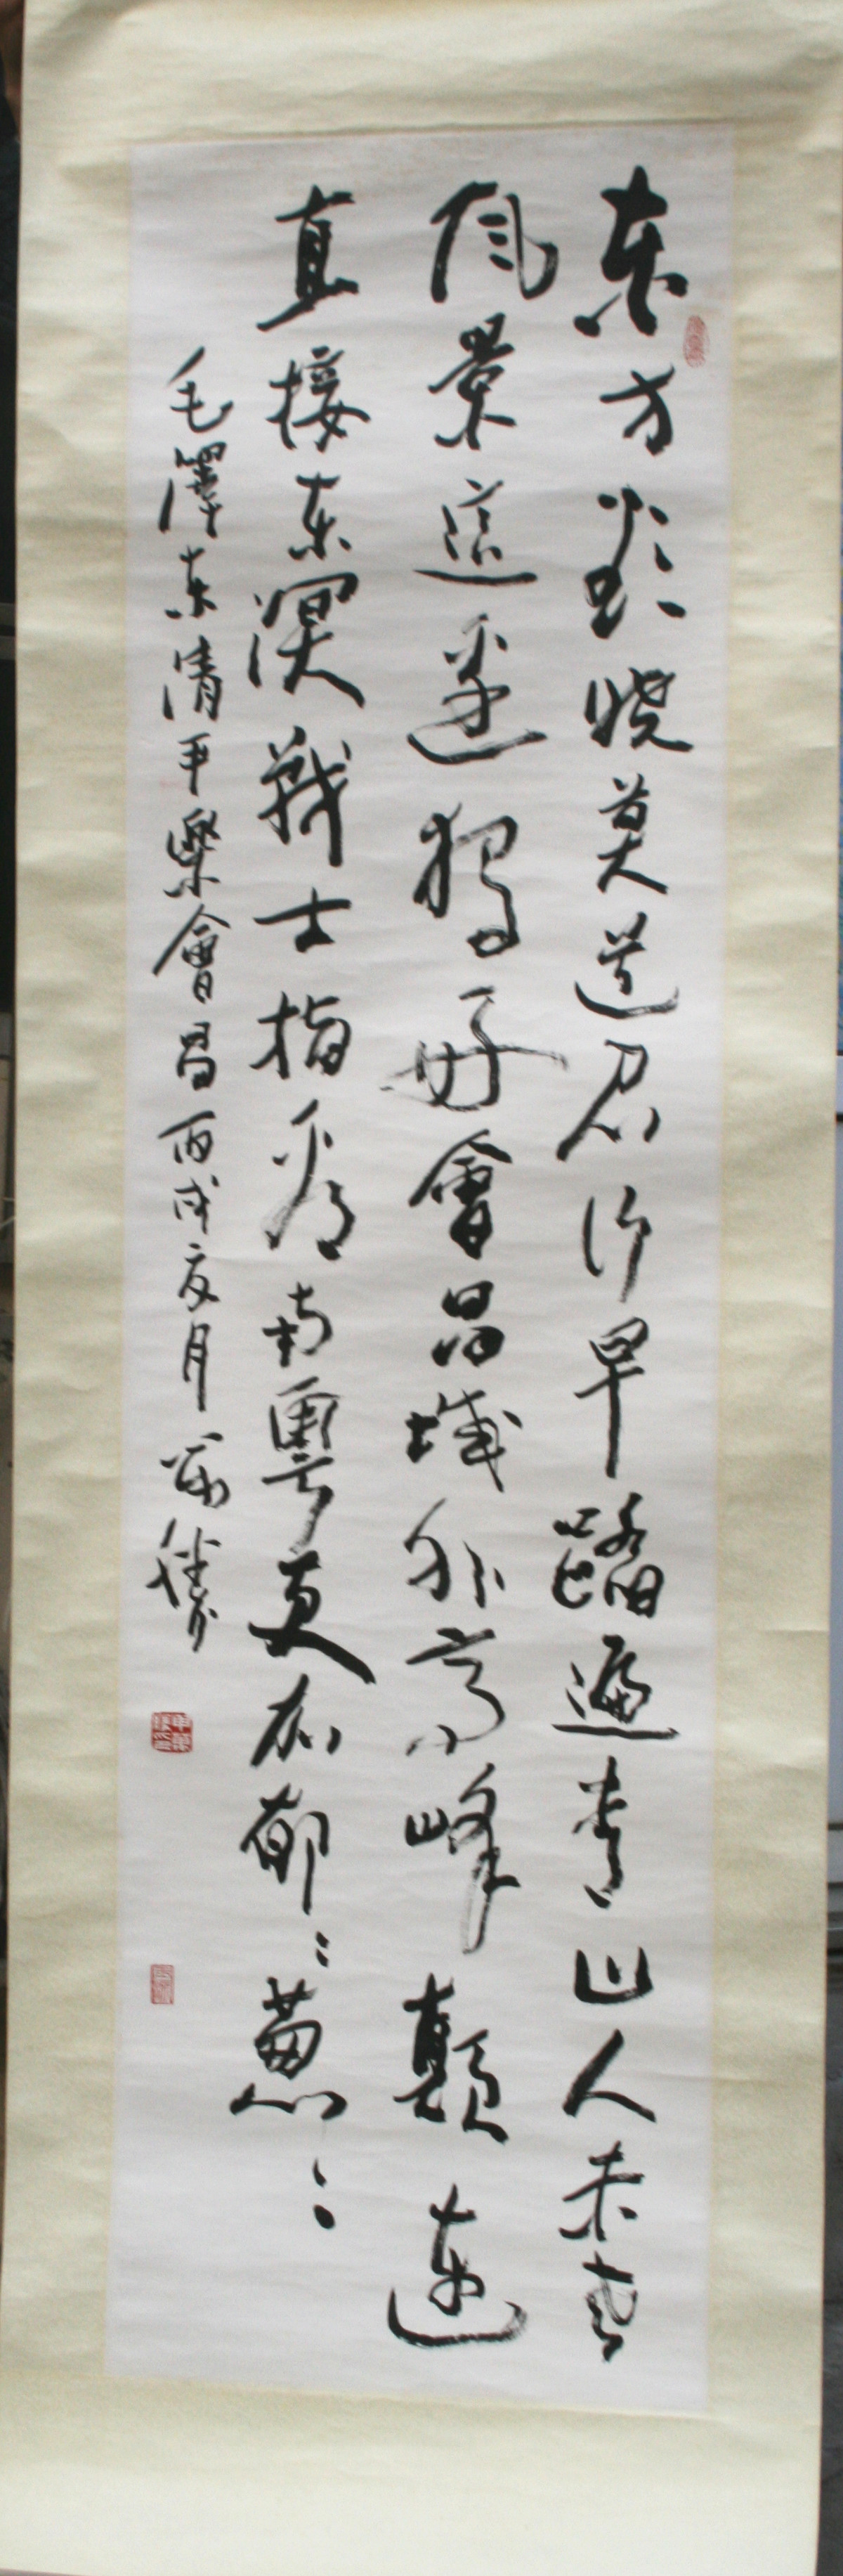 東方欲曉莫道君行早踏遍青山人未老
風景這邊獨好會昌城外高峰顛連
直接东溟战士指看南粵更加郁〻蔥〻
毛澤东清平樂會昌丙戌亥月万勝